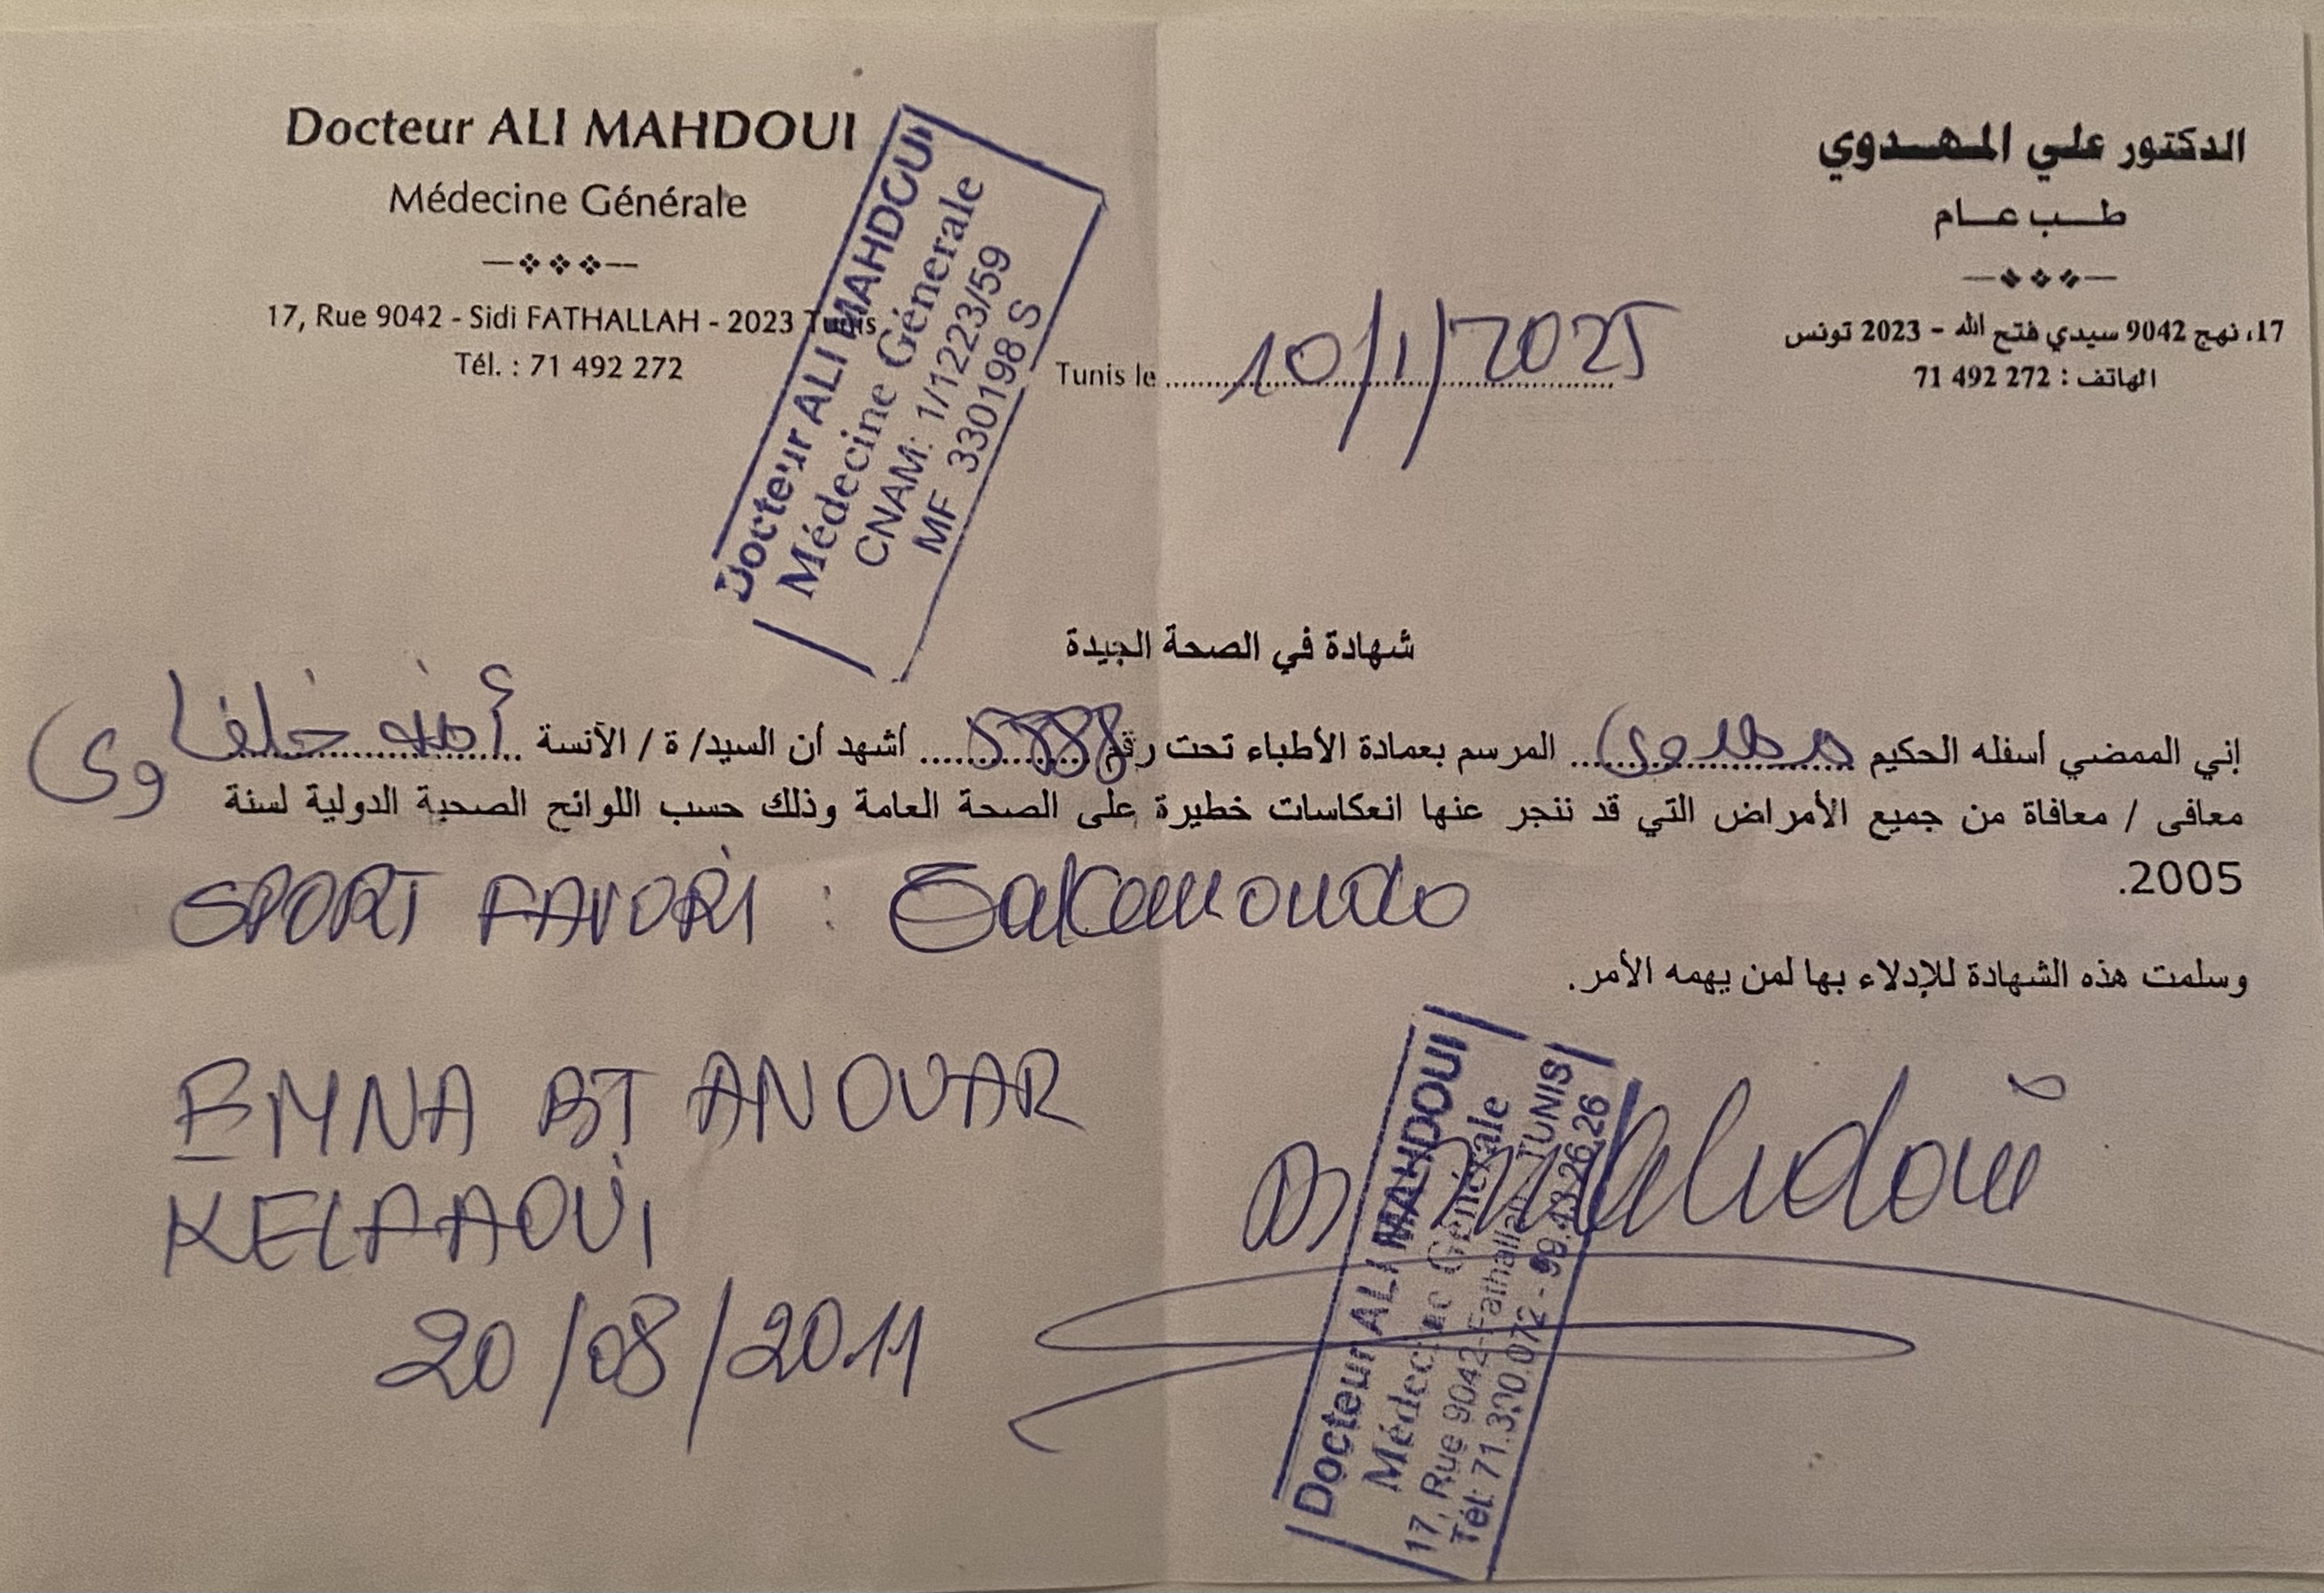 Docteur ALI MAHDOUI
Médecine Générale
17, Rue 9042 - Sidi FATHALLAH - 2023 Tunis
Tél. : 71 492 272
الدكتور علي المهدوي
طب عام
17، نهج 9042 سيدي فتح الله - 2023 تونس
الهاتف : 272 492 71
Docteur ALI MAHDOUI
Médecine Génerale
CNAM: 1/1223/59
MF 330198 S
Tunis le 10/1/2025
شهادة في الصحة الجيدة
إني الممضي أسفله الحكيم مهدوي المرسم بعمادة الأطباء تحت رقم أشهد أن السيد/ ة / الآنسة أمنه خلفاوي
معافى / معافاة من جميع الأمراض التي قد ننجر عنها انعكاسات خطيرة على الصحة العامة وذلك حسب اللوائح الصحية الدولية لسنة
2005.
SPORT FAVORI :
وسلمت هذه الشهادة للإدلاء بها لمن يهمه الأمر.
EMNA BT ANOUAR
KELFAOUI
20/08/2011
Dr Mahdoui
Docteur ALI MAHDOUI
Médecine Générale
17, Rue 9042-Fathallah - TUNIS
Tél: 71.300.072 - 99.43.26.26